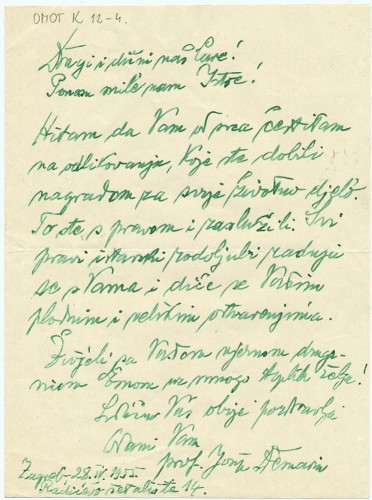 OMOT K 12-4.
Dragi i dični naš Care!
Ponos mile nam Istre!
Hitam da Vam od srca čestitam
na odlikovanju, koje ste dobili
nagradom za svoje životno djelo.
To ste s pravom i zaslužili. Svi
pravi istarski rodoljubi raduju
se s Vama i diče se Vašim
plodnim i velikim ostvarenjima.
Živjeli sa Vašom vjernom drugaricom
Emom uz mnogo toplih želja!
Srdačno Vas obje pozdravlja
odani Vam
prof. Josip
Zagreb, 28. IV. 1955.
šetalište 14.